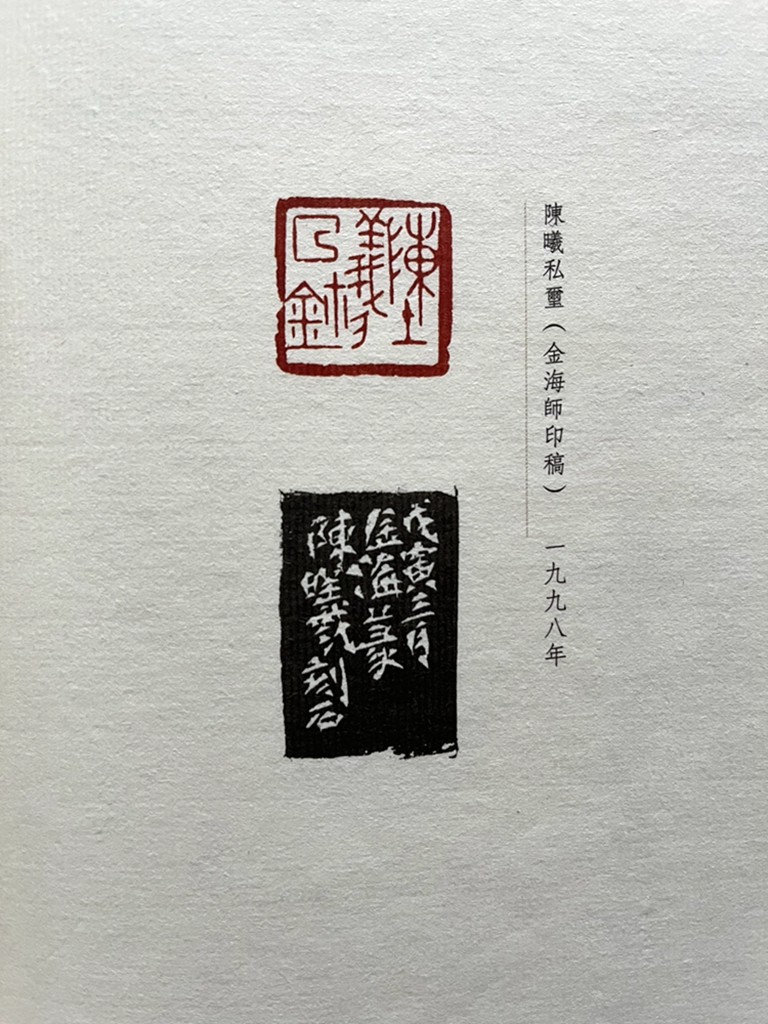 陳曦私璽（金海師印稿） 一九九八年
戊寅三月
金海篆
陳曦刻石